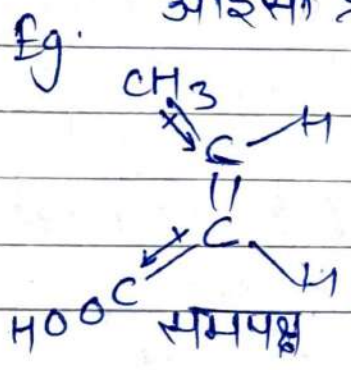 Eg.
CH3
C - H
||
C
C H
HOO समपक्ष